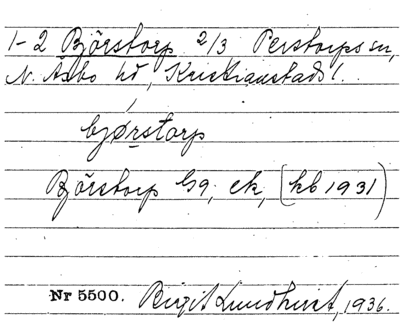 1-2 Björstorp 2/3 Perstorps sn,
N. Åsbo hd, Kristianstads l.
bjørstorp
Björstorp by, ek, (kb 1931)
Nr 5500. Birgit Lundkvist, 1936.